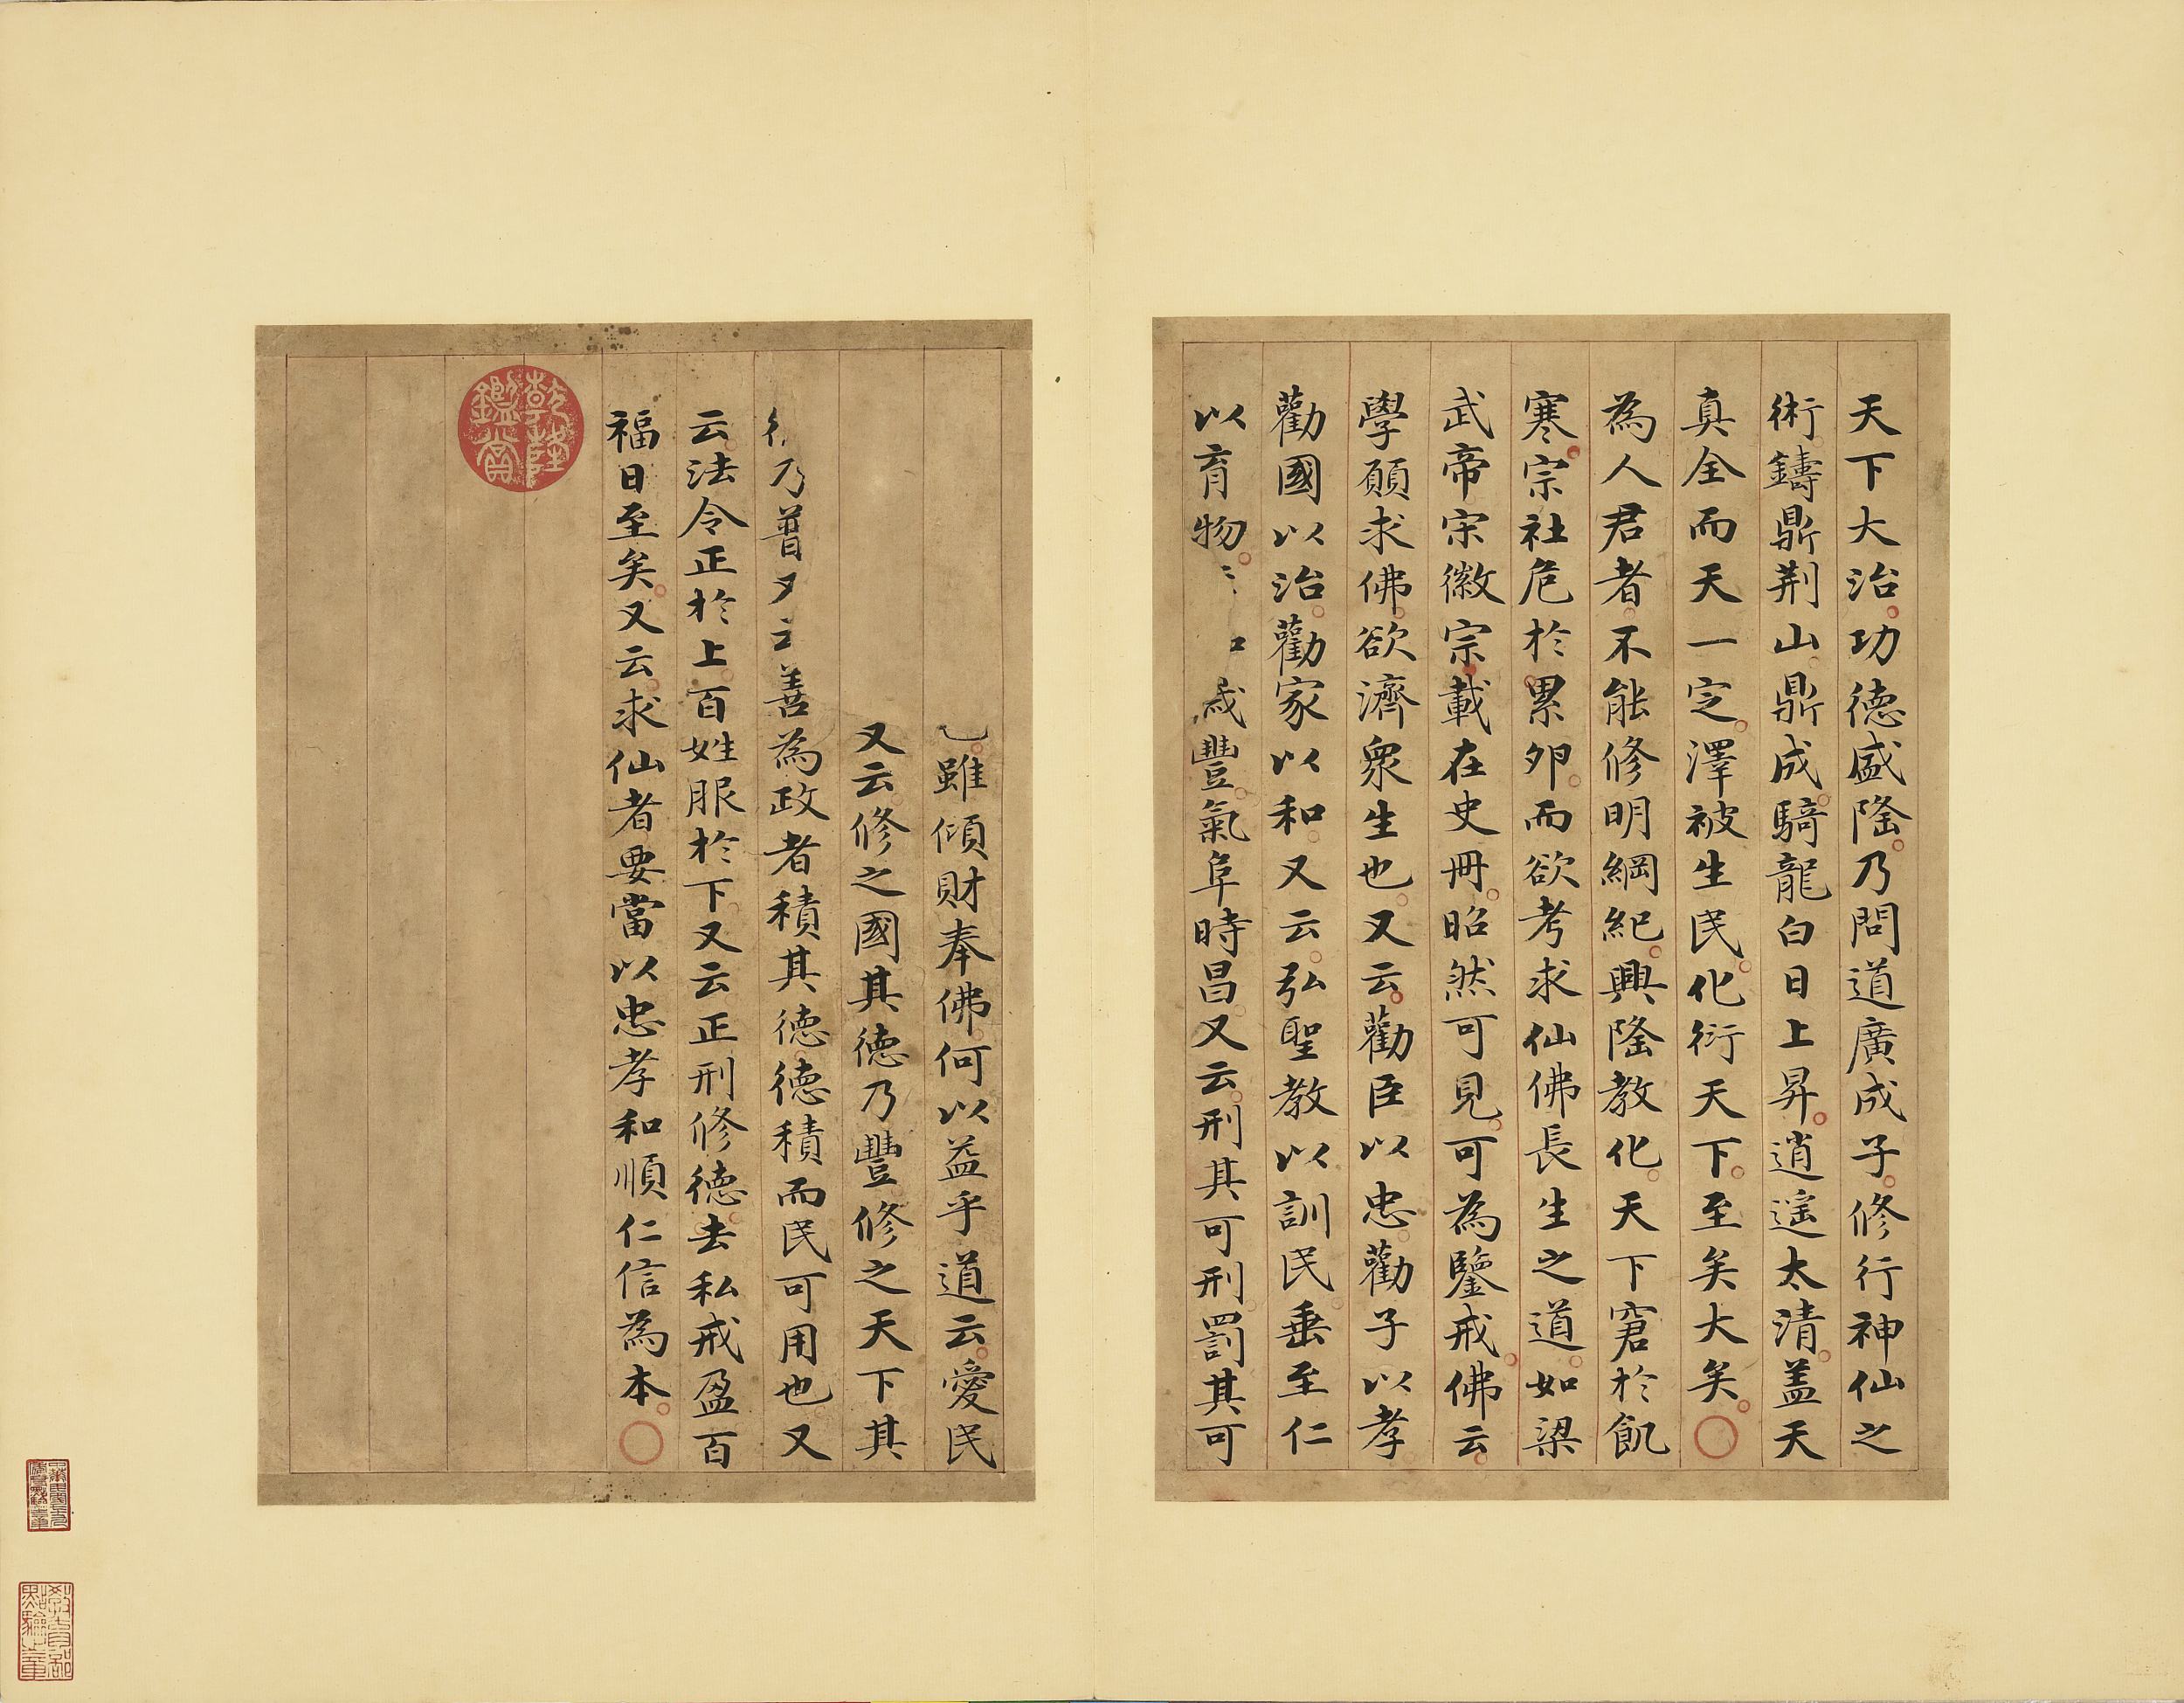 天下大治功德盛隆乃問道廣成子修行神仙之
術鑄鼎荆山鼎成騎龍白日上昇逍遥太清盖天
真全而天一定澤被生民化衍天下至矣大矣
為人君者不能修明綱紀興隆教化天下窘於飢
寒宗社危於累卵而欲考求仙佛長生之道如梁
武帝宋徽宗載在史冊昭然可見可為鑒戒佛云
學願求佛欲濟衆生也又云勸臣以忠勸子以孝
勸國以治勸家以和又云弘聖教以訓民垂至仁
以育物歲豐氣阜時昌又云刑其可刑罰其可
雖傾財奉佛何以益乎道云愛民
又云修之國其德乃豐修之天下其
乃普善為政者積其德德積而民可用也又
云法令正於上百姓服於下又云正刑修德去私戒盈百
福日至矣又云求仙者要當以忠孝和順仁信為本
乾隆鑑賞